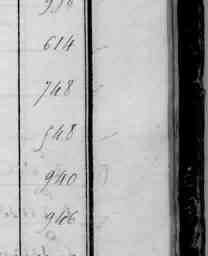 614
748
548
940
946